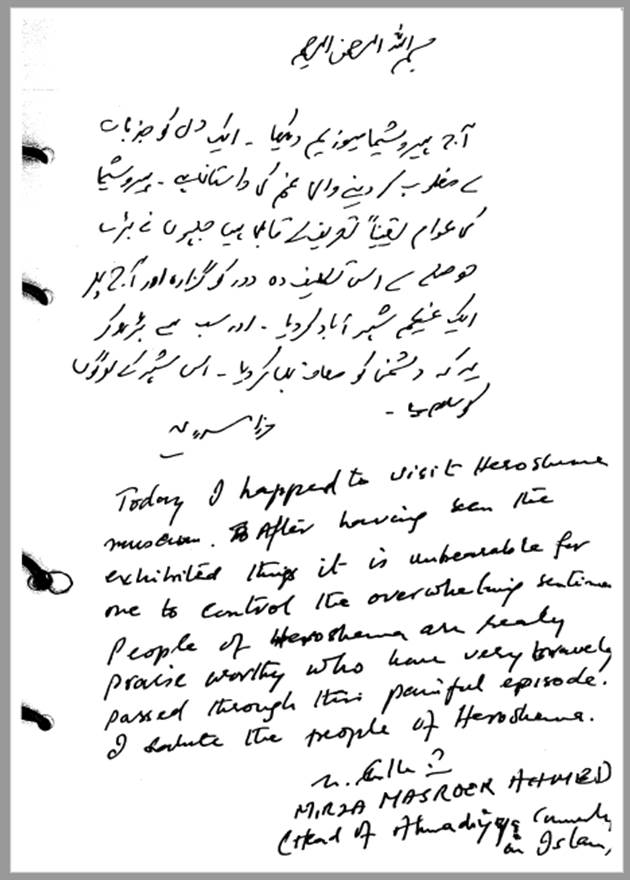 بسم اللہ الرحمن الرحیم
آج ہیروشیما میوزیم دیکھا ۔ ایک دل کو جذبات
سے مغلوب کر دینے والی غم کی داستان ہے ۔ ہیروشیما
کی عوام یقیناً تعریف کے قابل ہیں جنہوں نے بڑے
حوصلے سے اس تکلیف دہ دور کو گزارہ اور آج پھر
ایک عظیم شہر آباد کر دیا ۔ اور سب سے بڑھ کر
یہ کہ دشمن کو معاف بھی کر دیا ۔ اس شہر کے لوگوں
کو سلام ہے ۔
Today I happed to visit Heroshema
museum. After having seen the
exhibited things it is unbearable for
one to control the overwhelming sentime
People of Heroshema are really
praise worthy who have very bravely
passed through this painful episode.
I salute the people of Heroshema.
MIRZA MASROER AHMED
(Head of Ahmadiyya Community
in Islam,